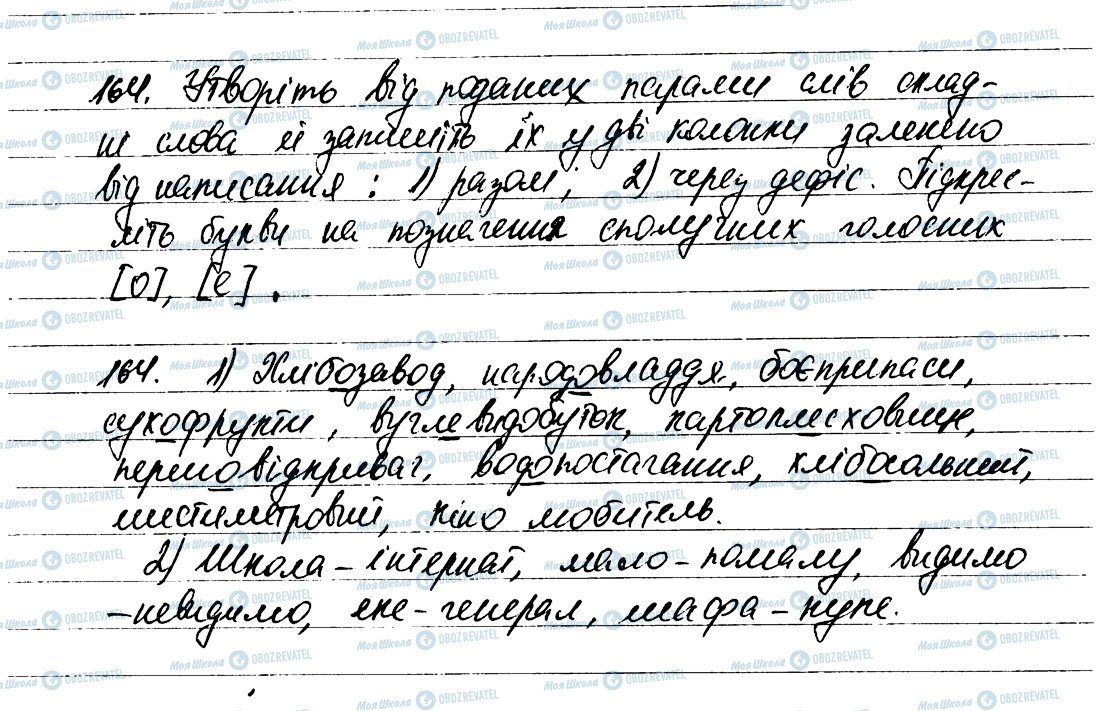 164. Утворіть від поданих парами слів склад-
ні слова й запишіть їх у дві колонки залежно
від написання: 1) разом; 2) через дефіс. Підкрес-
літь букви на позначення сполучних голосних
[о], [е].
164. 1) Хлібозавод, народовладдя, боєприпаси,
сухофрукти, вуглевидобуток, картоплесховище,
першовідкривач, водопостачання, хлібосольний,
шестиметровий, кіно любитель.
2) Школа - інтернат, мало - помалу, видимо
- невидимо, екс - генерал, шафа - купе.